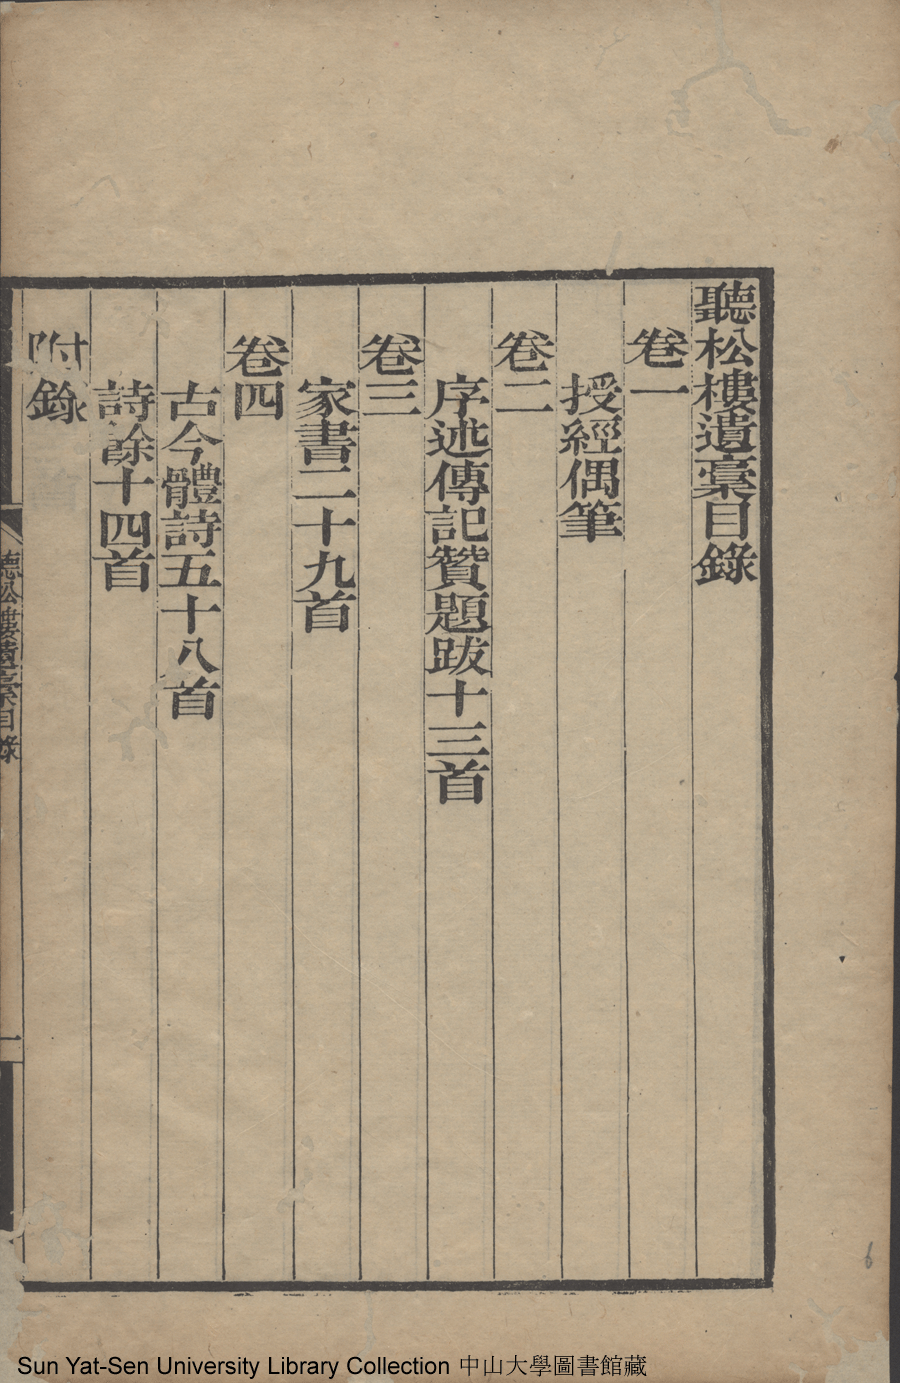 聽松樓遺稾目錄
卷一
授經偶筆
卷二
序述傳記贊題跋十三首
卷三
家書二十九首
卷四
古今體詩五十八首
詩餘十四首
附錄
聽松樓遺稾目錄
一
6
Sun Yat-Sen University Library Collection 中山大學圖書館藏